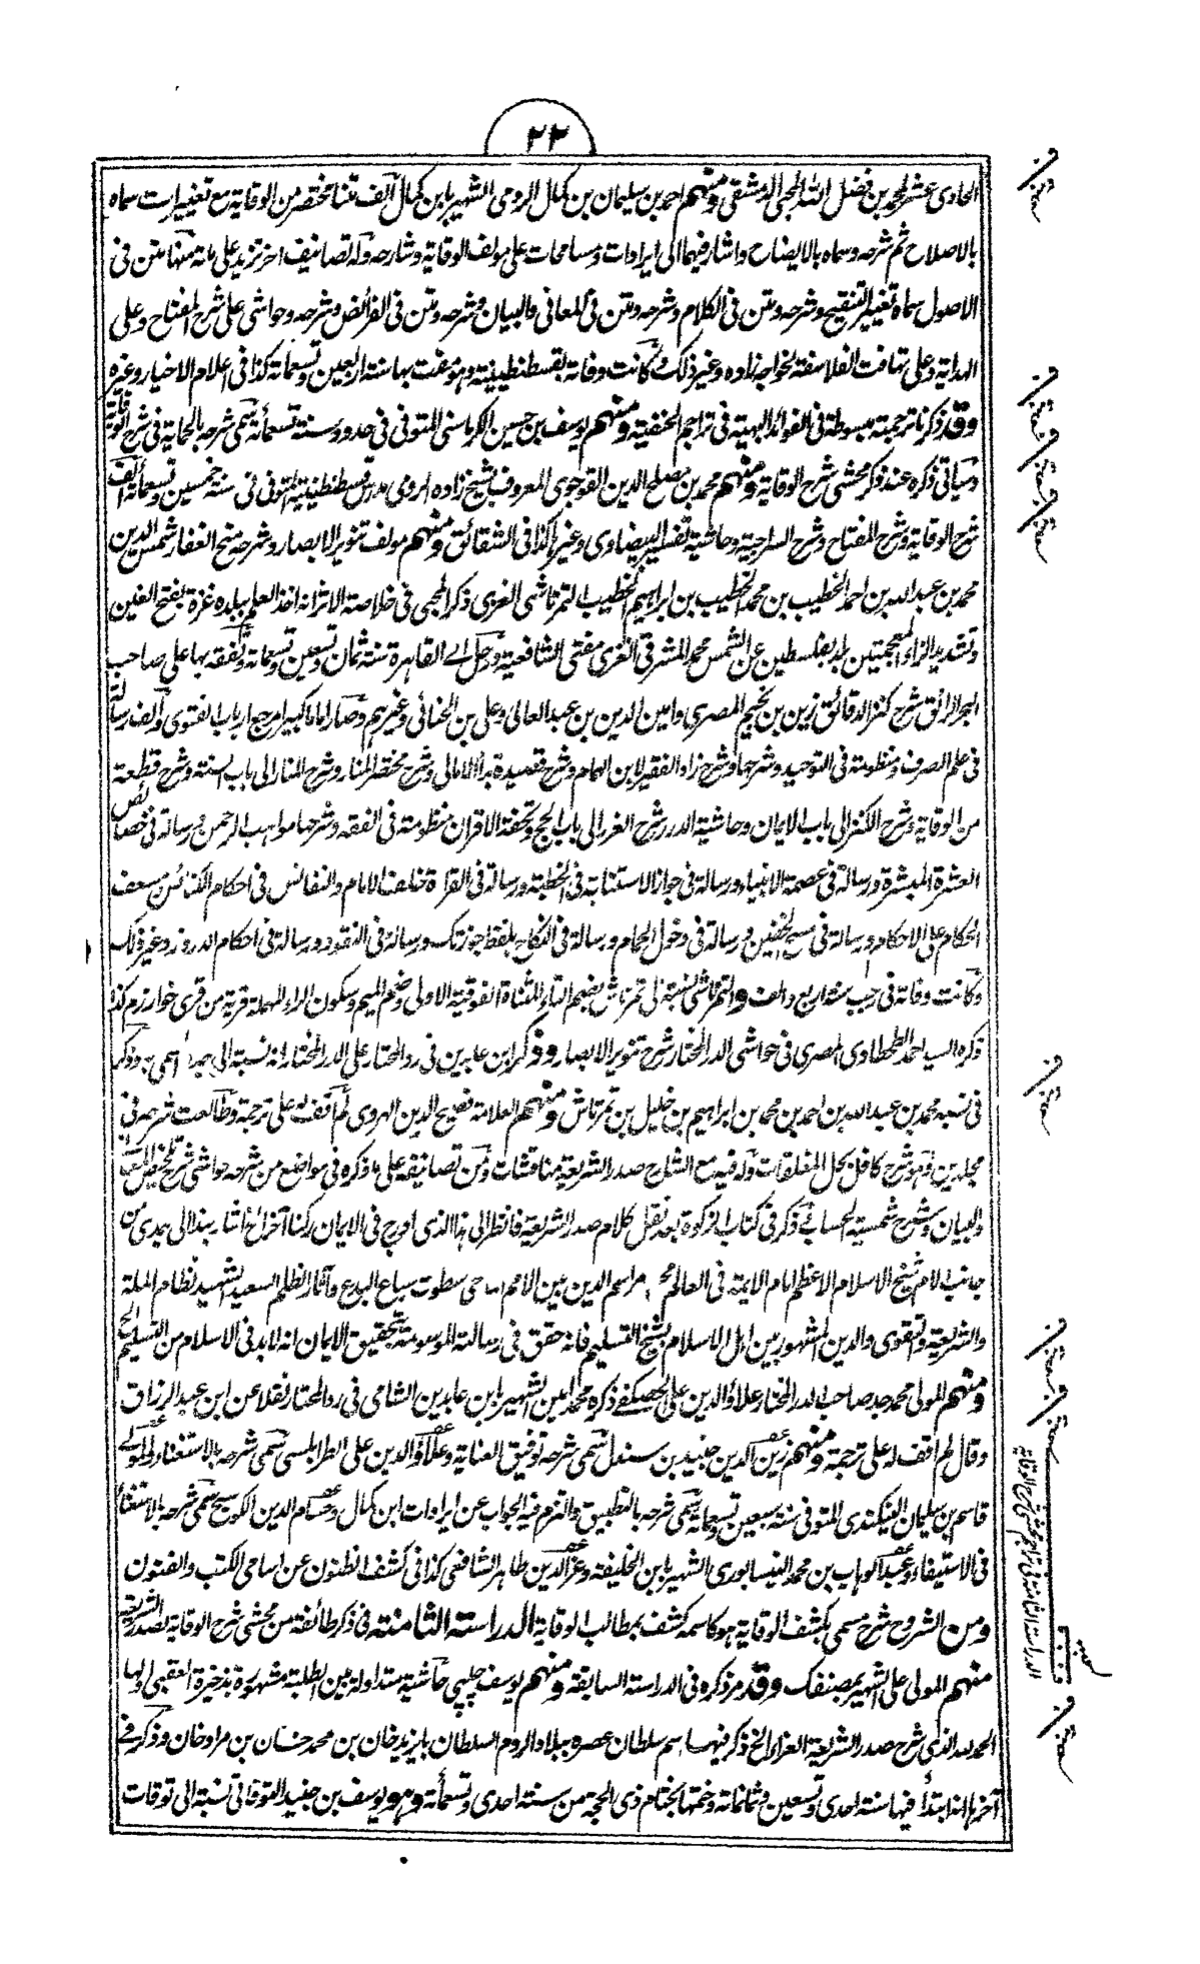 ٢٢
الحادى عشر لمحمد بن فضل الله المحبى الدمشقى ومنهم احمد بن سليمان بن كمال الرومى الشهير بابن كمال الف متنا مختصر من الوقاية مع تغييرات سماه
بالاصلاح ثم شرحه وسماه بالايضاح واشار فيهما الى ايرادات ومسامحات على مولف الوقاية وشارحه وله تصانيف اخر تزيد على مائة منها متن فى
الاصول سماه تغيير التنقيح وشرحه ومتن فى الكلام وشرحه ومتن فى المعانى والبيان وشرحه ومتن فى الفرائض وشرحه وحواشى على شرح المفتاح وعلى
الهداية وعلى تهافت الفلاسفة لخواجه زاده وغير ذلك وكانت وفاته بقسطنطينية وهو مفت بها سنة اربعين وتسعمائة كذا فى اعلام الاخيار وغيره
وقد ذكرنا ترجمته مبسوطة فى الفوائد البهية فى تراجم الحنفية ومنهم يوسف بن حسين الكرماسنى المتوفى فى حدود سنة تسعمائة سمى شرحه بالحماية فى شرح الوقاية
وسياتى ذكره عند ذكر محشى شرح الوقاية ومنهم محمد بن مصلح الدين القوجوى المعروف بشيخ زاده الرومى مدرس قسطنطينية المتوفى فى سنة خمسين وتسعمائة الف
شرح الوقاية وشرح المفتاح وشرح السراجية وحاشية تفسير البيضاوى وغيرها كذا فى الشقائق ومنهم مولف تنوير الابصار وشرحه منح الغفار شمس الدين
محمد بن عبد الله بن احمد الخطيب بن محمد الخطيب بن ابراهيم الخطيب التمرتاشى الغزى ذكر المحبى فى خلاصة الاثر انه اخذ العلم ببلده غزة بفتح الغين
وتشديد الزاء المعجمتين بلد بفلسطين عن الشمس محمد المشرقى الغزى مفتى الشافعية ورحل الى القاهرة سنة ثمان وتسعين وتسعمائة وتفقه بها على صاحب
البحر الرائق شرح كنز الدقائق زين بن نجيم المصرى وامين الدين بن عبد العالى وعلى بن الحنائى وغيرهم وصار اماما كبيرا مرجع ارباب الفتوى والف رسالة
فى علم الصرف ومنظومة فى التوحيد وشرحها وشرح زاد الفقير لابن الهمام وشرح قصيدة بدأ الامالى وشرح مختصر المنار وشرح المنار الى باب السنة وشرح قطعة
من الوقاية وشرح الكنز الى باب الايمان وحاشية الدرر شرح الغرر الى باب الحج وتحفة الاقران منظومة فى الفقه وشرحها مواهب الرحمن ورسالة فى خصائص
العشرة المبشرة ورسالة فى عصمة الانبياء ورسالة فى جواز الاستنابة فى الخطبة ورسالة فى القراة خلف الامام والنفائس فى احكام الكنائس ومسعف
الحكام على الاحكام ورسالة فى مسح الخفين ورسالة فى دخول الحمام ورسالة فى النكاح بلفظ جوزتك ورسالة فى النقود ورسالة فى احكام الدروز وغير ذلك
وكانت وفاته فى رجب سنة اربع والف والتمرتاشى نسبة الى تمرتاش بضم التاء المثناة الفوقية الاولى وضم الميم وسكون الراء المهملة قرية من قرى خوارزم كذا
ذكره السيد احمد الطحطاوى المصرى فى حواشى الدر المختار شرح تنوير الابصار وذكر ابن عابدين فى رد المختار على الدر المختار انه نسبة الى جده اسمه وذكر
فى نسبه محمد بن عبد الله بن احمد بن محمد بن ابراهيم بن خليل بن تمرتاش ومنهم العلامة فصيح الدين الهروى لم اقف له على ترجمة وطالعت شرحه فى
مجلدين وهو شرح كافل بحل المغلقات وله فيه مع الشارح صدر الشريعة مناقشات ومن تصانيفه على ما ذكره فى مواضع من شرحه حواشى شرح تلخيص المعانى
والبيان وشرح شمسية الحساب ذكر فى كتاب الزكوة بعد نقل كلام صدر الشريعة فانظر الى هذا الذى ادرج فى الايمان ركنا آخر الخ
جانب الام شيخ الاسلام الاعظم امام الايمة فى العالم مراسم الدين بين الامم ماحى سطوت سباع البدع وآثار الظلم السعيد الشهيد نظام الملة
والشريعة والتقوى والدين المشهور بين اهل الاسلام بشيخ التسليم فانه حقق فى رسالته الموسومة بتحقيق الايمان انه لابد فى الاسلام من التسليم الخ
ومنهم المولى محمد جد صاحب الدر المختار علاؤ الدين على الحصكفى ذكره محمد امين الشهير بابن عابدين الشامى فى رد المحتار نقلا عن ابن عبد الرزاق
وقال لم اقف له على ترجمة ومنهم زين الدين جنيد بن سندل سمى شرحه توفيق العناية وعلاؤ الدين على الطرابلسى سمى شرحه بالاستغناء والمولى
قاسم بن سليمان النيكندى المتوفى سنة سبعين وتسعمائة سمى شرحه بالتطبيق والتزم فيه الجواب عن ايرادات ابن كمال وحسام الدين الكوسج سمى شرحه بالاستغناء
فى الاستيفاء وعبد الوهاب بن محمد النيسابورى الشهير بابن الخليفة وعز الدين طاهر الشافعى كذا فى كشف الظنون عن اسامى الكتب والفنون
ومن الشروح شرح مسمى بكشف الوقاية هو كاسمه كشف بمطالب الوقاية الدراسة الثامنة فى ذكر طائفة من محشى شرح الوقاية لصدر الشريعة
منهم المولى على الشهير بمصنفك وقد مر ذكره فى الدراسة السابقة ومنهم يوسف چلپى حاشية متداولة بين الطلبة مشهورة بذخيرة العقبى اولها
الحمد لله الذى شرح صدر الشريعة الغراء الخ ذكر فيها اسم سلطان عصره ببلاد الروم السلطان بايزيد خان بن محمد خان بن مراد خان وذكر فى
آخرها انه ابتدأ فيها سنة احدى وتسعين وثمانمائة وختمها بختام ذى الحجة من سنة احدى وتسعمأة وهو يوسف بن جنيد التوقاتى نسبة الى توقات
الدراسة الثامنة فى تراجم محشى شرح الوقاية